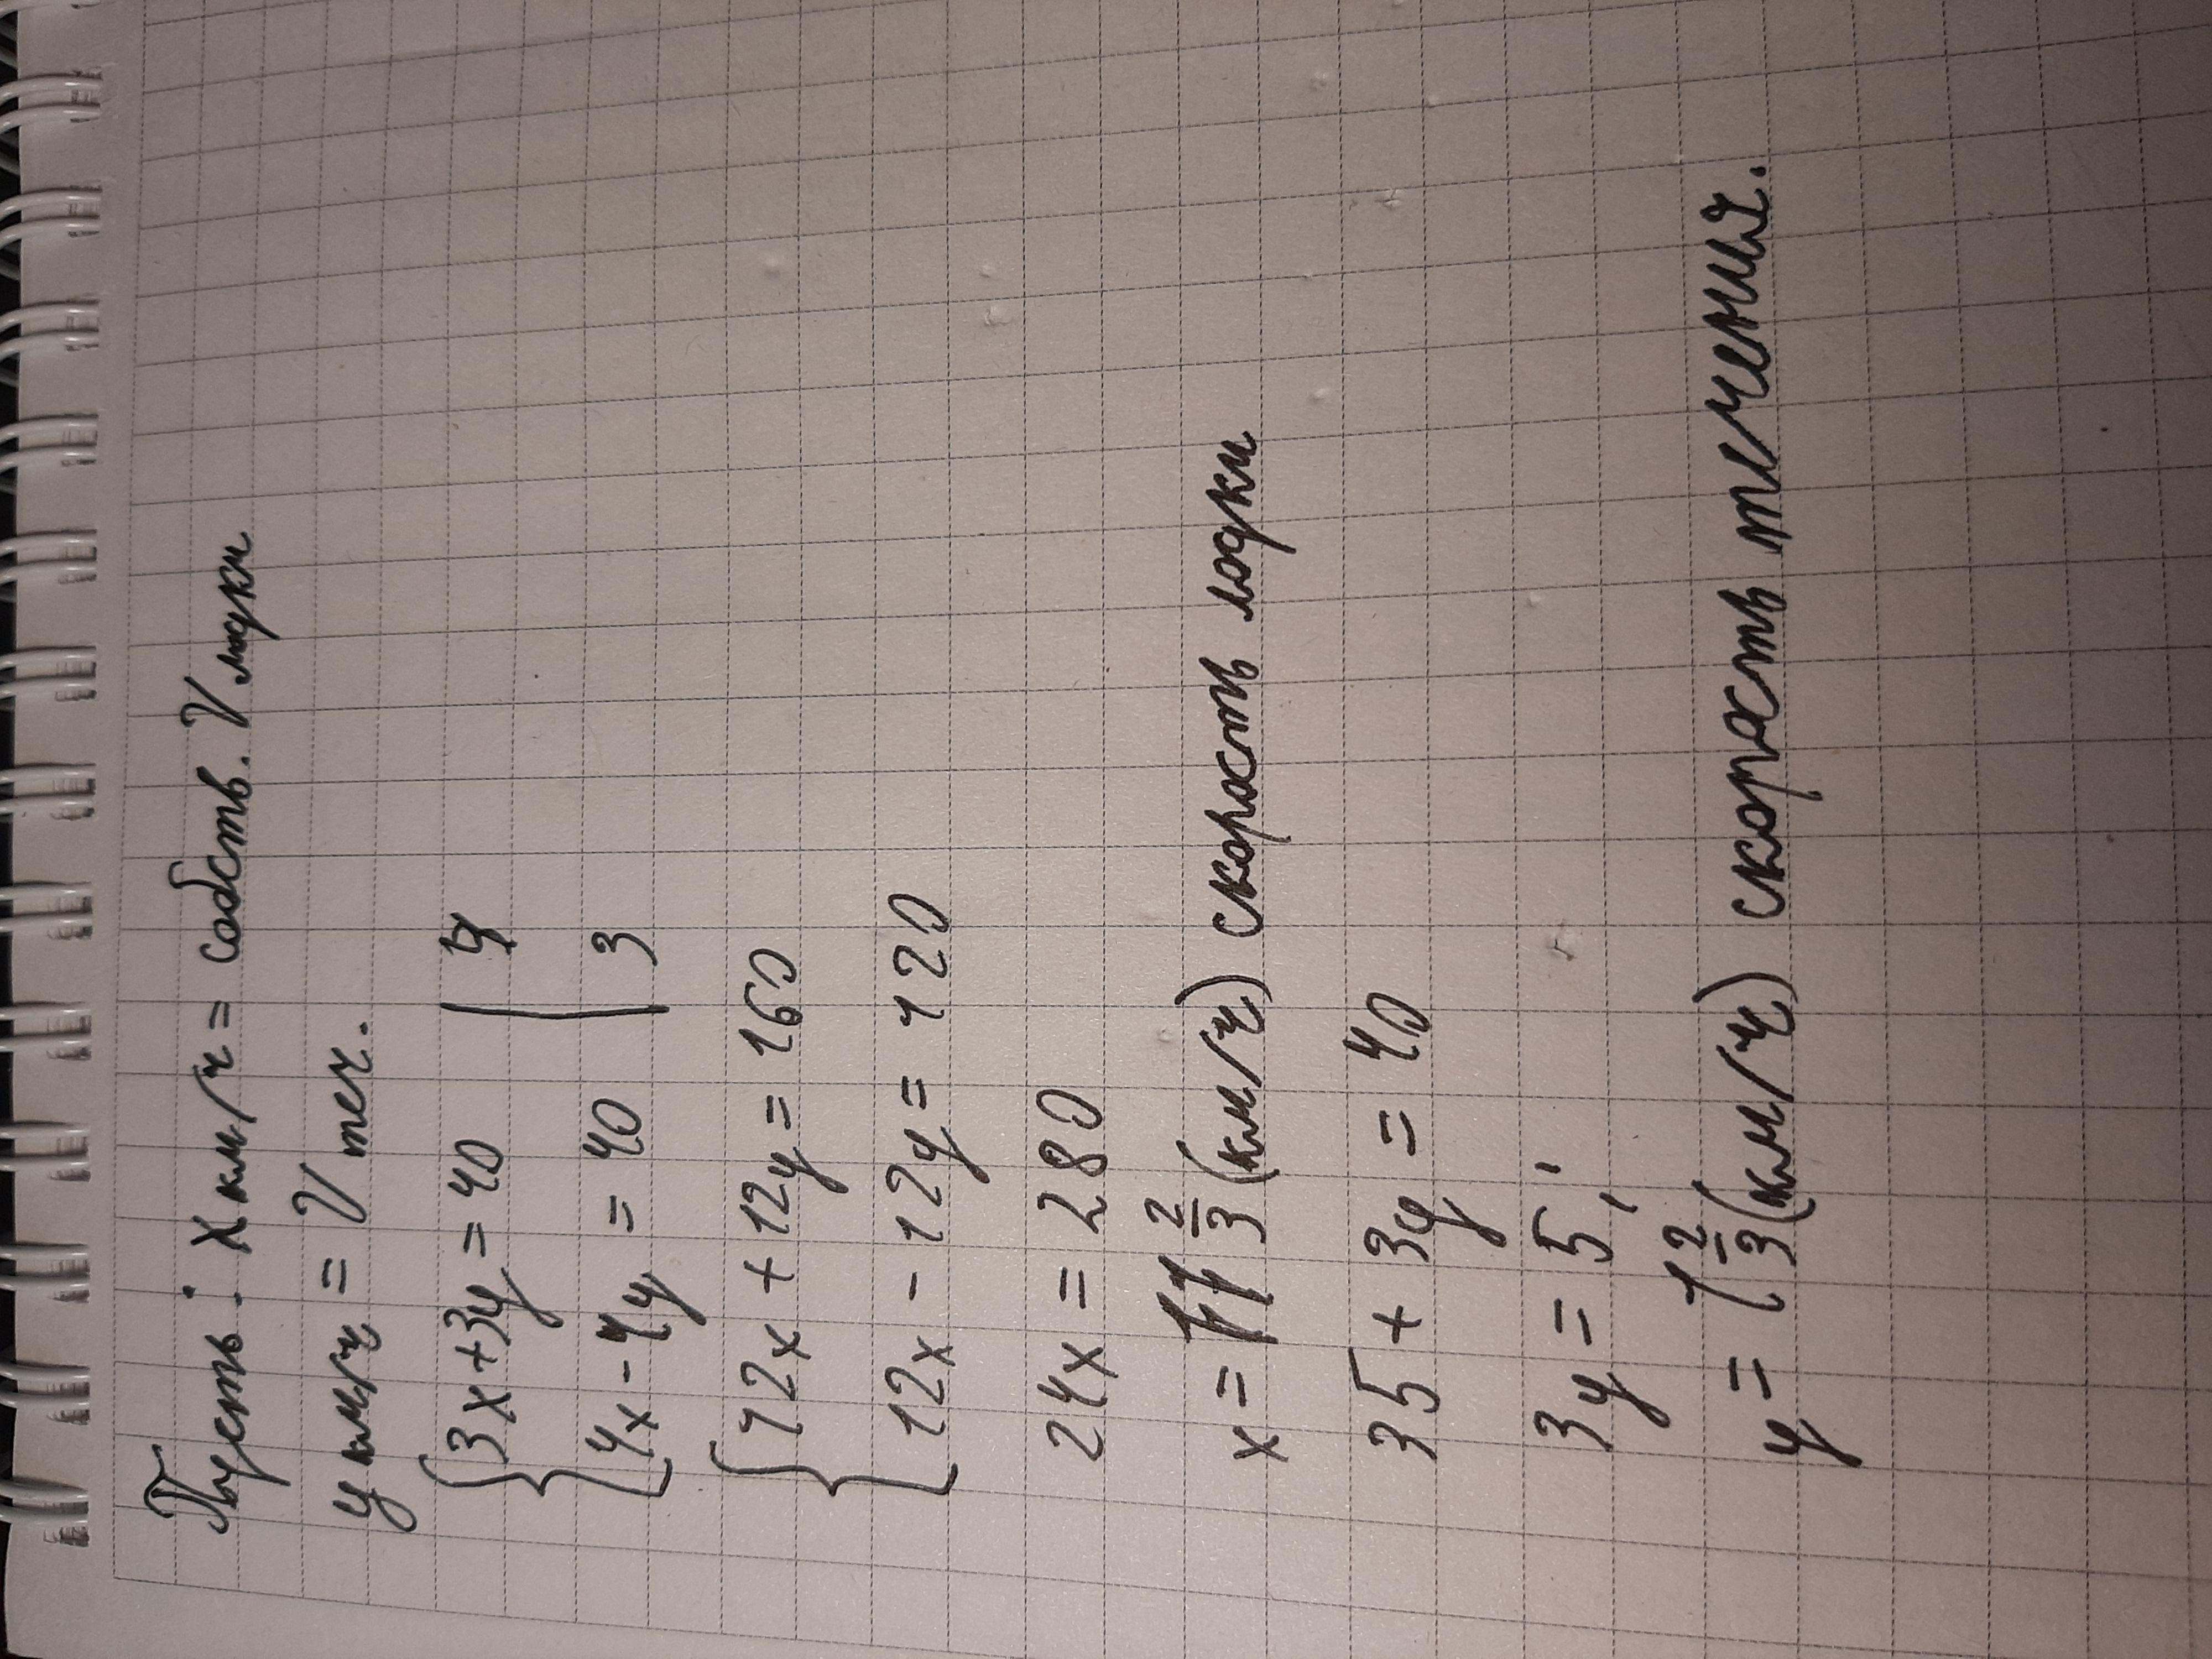 Пусть: x км/ч = собств. V лодки
y км/ч = V теч.
{3x+3y=40 | 4
{4x-4y=40 | 3
{12x+12y=160
{12x-12y=120
24x=280
x=11 2/3 (км/ч) скорость лодки
35+3y=40
3y=5;
y=1 2/3 (км/ч) скорость течения.